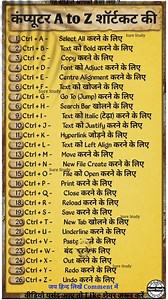 कंप्यूटर A to Z शॉर्टकट की
1 Ctrl + A - Select All करने के लिए
2 Ctrl + B - Text को Bold करने के लिए
3 Ctrl + C - Copy करने के लिए
4 Ctrl + D - Font Adjust करने के लिए
5 Ctrl + E - Centre Alignment करने के लिए
6 Ctrl + F - Text Find करने के लिए
7 Ctrl + G - Go To (Jump) करने के लिए
8 Ctrl + H - Search Bar खोलने के लिए
9 Ctrl + I - Text को Italic (टेढ़ा) करने के लिए
10 Ctrl + J - Text को Justify करने के लिए
11 Ctrl + K - Hyperlink जोड़ने के लिए
12 Ctrl + L - Text को Left Align करने के लिए
13 Ctrl + M - Move करने के लिए
14 Ctrl + N - New File Create करने के लिए
15 Ctrl + O - File को Open करने के लिए
16 Ctrl + P - Print करने के लिए
17 Ctrl + Q - Close करने के लिए
18 Ctrl + R - Reload करने के लिए
19 Ctrl + S - Save करने के लिए
20 Ctrl + T - New Tab खोलने के लिए
21 Ctrl + U - Underline करने के लिए
22 Ctrl + V - करने के लिए
23 Ctrl + W - बंद करने के लिए
24 Ctrl + X - Cut करने के लिए
25 Ctrl + Y - Redo करने के लिए
26 Ctrl + Z - Undo करने के लिए
जय हिन्द लिखें Comment में